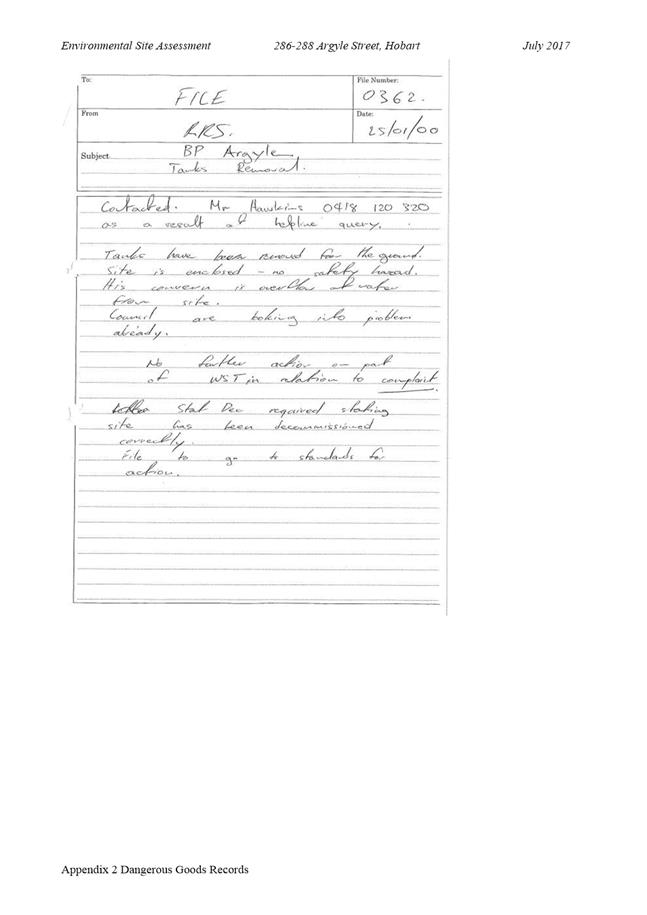 Environmental Site Assessment 286-288 Argyle Street, Hobart July 2017
To: FILE File Number: 0362.
From RRS. Date: 25/01/00
Subject BP Argyle
Tanks Removal.
Contacted. Mr Hawkins 0418 120 320
as a result of helpline query.
Tanks have been removed from the ground.
Site is enclosed - no safety hazard.
His concern is overflow of water
from site.
Council are looking into problem
already.
No further action on part
of WST in relation to complaint.
Stat Dec required stating
site has been decommissioned
correctly.
File to go to standards for
action.
Appendix 2 Dangerous Goods Records